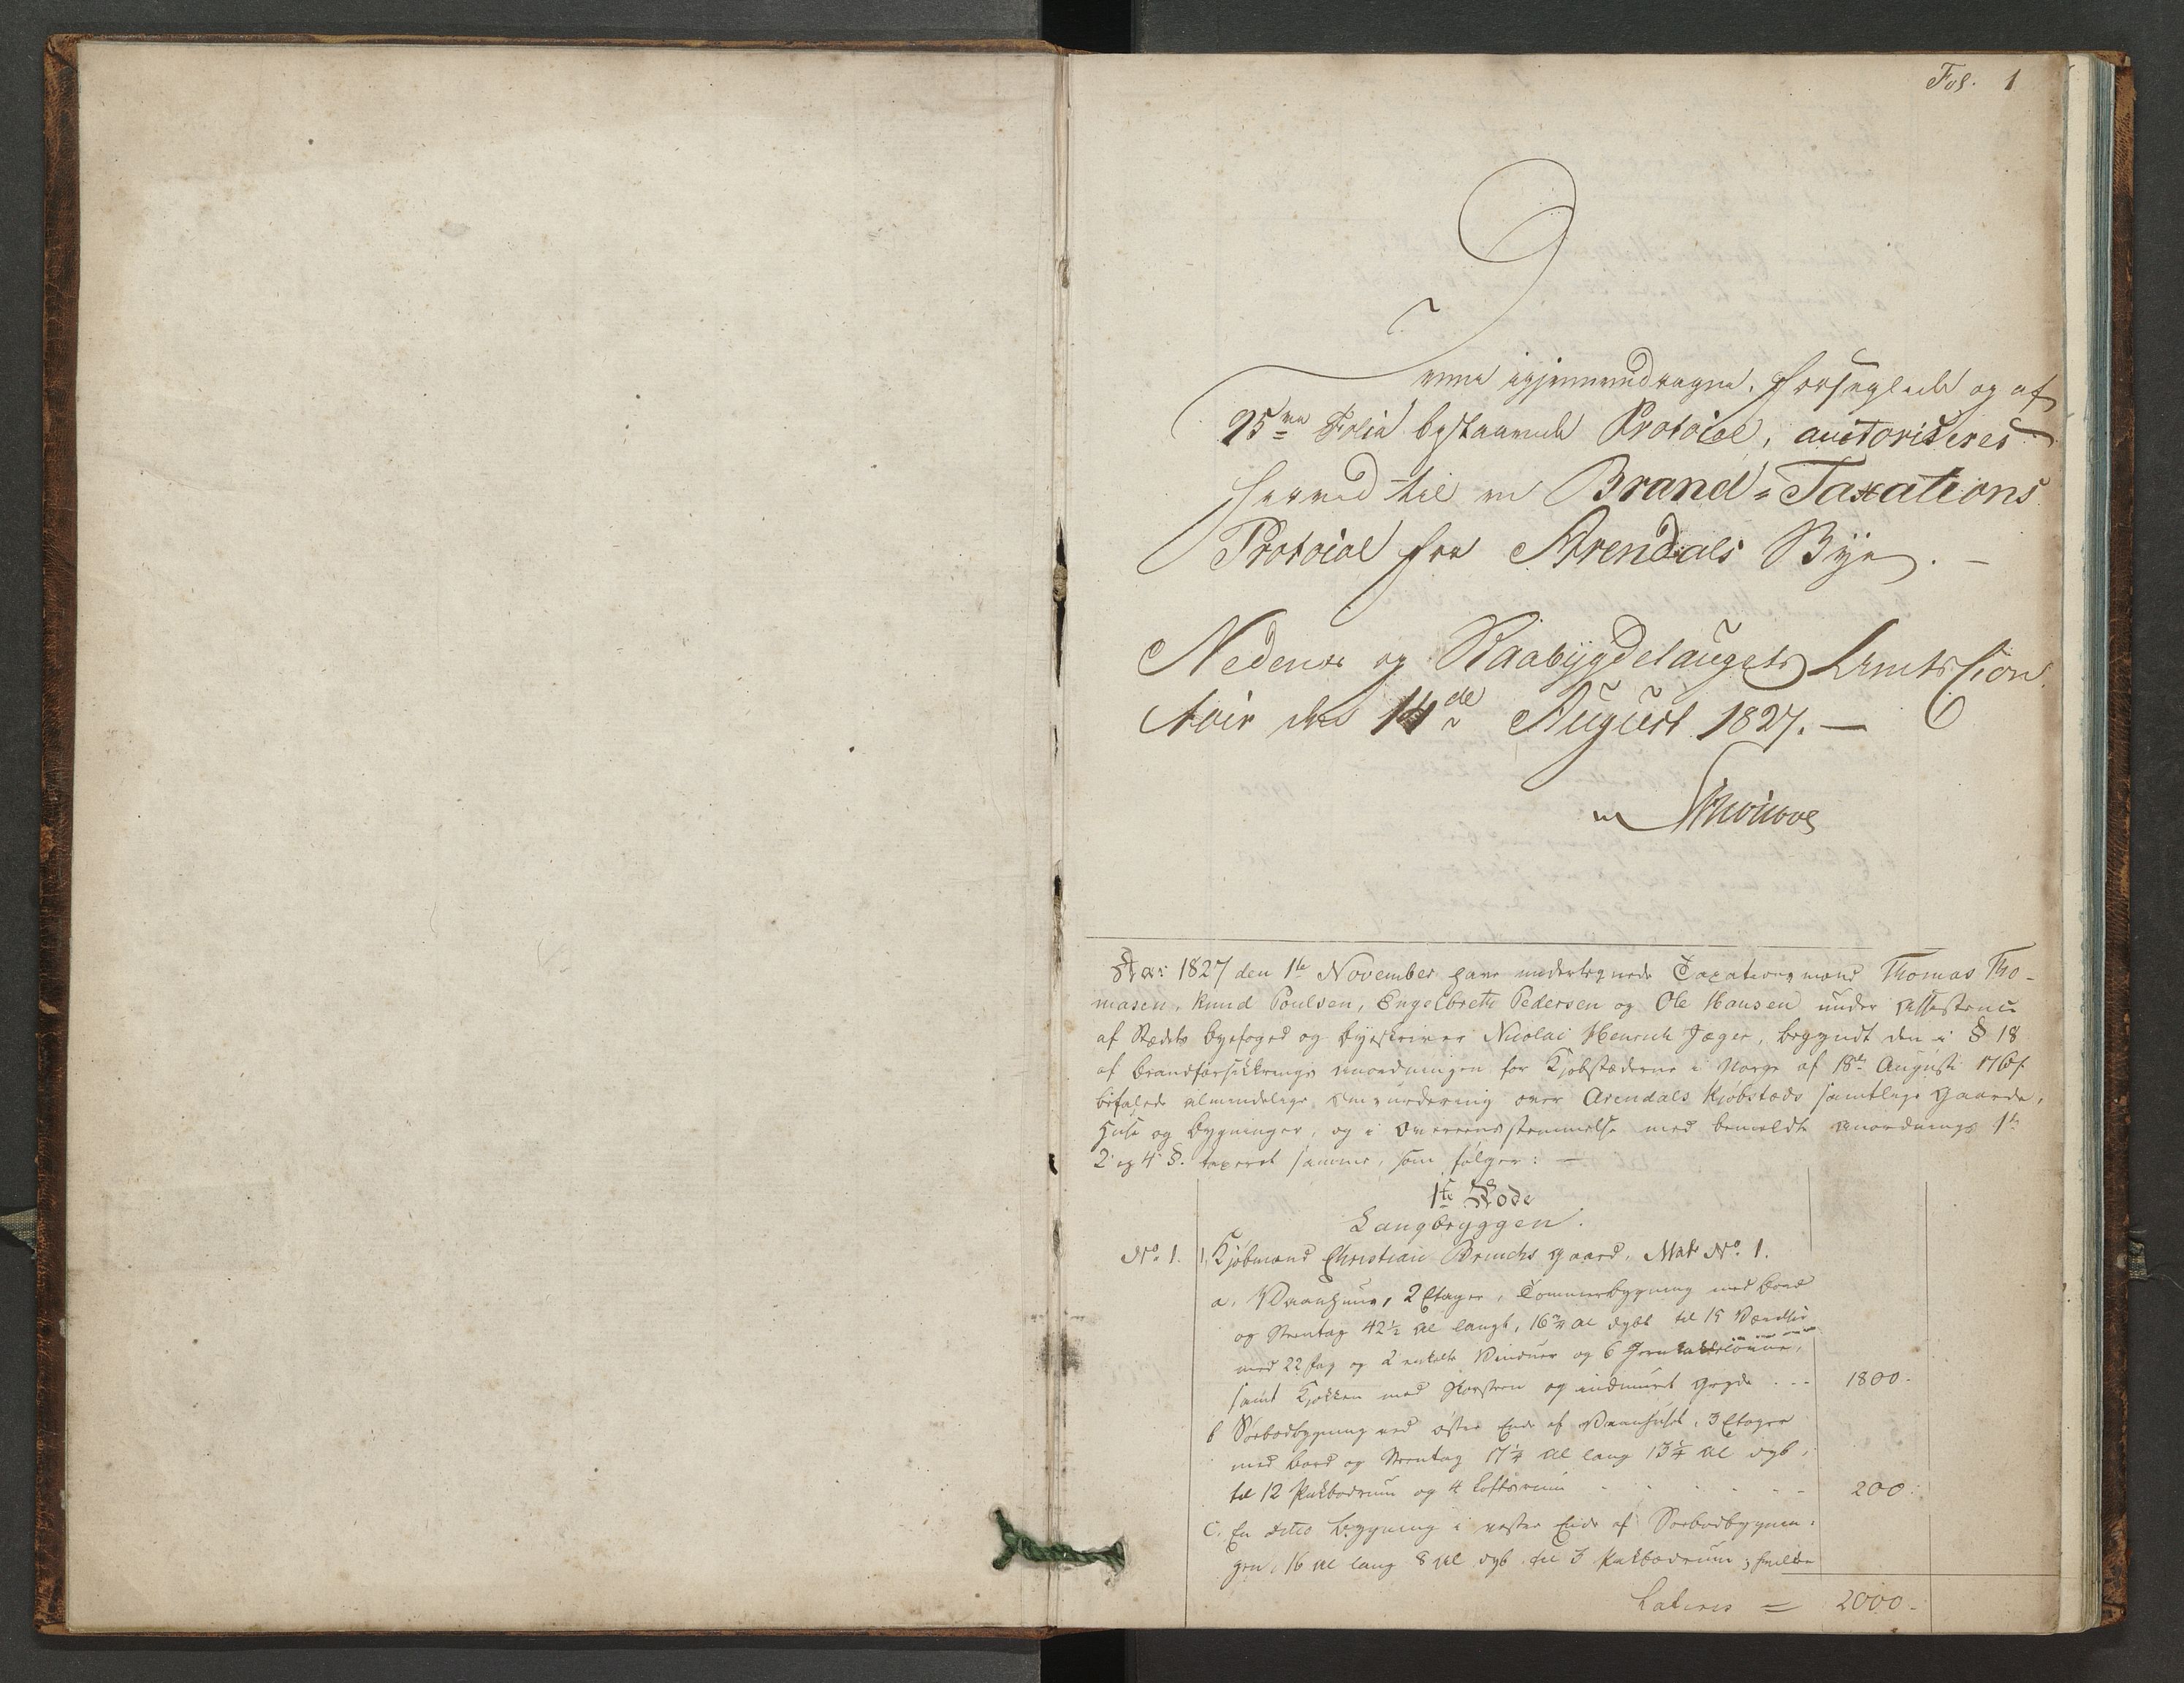 Fol. 1
Denne igjennemdragne, forseglede og af
95ve Folia bestaaende Protocol, auctoriseres
herved til en Brand-Taxations
Protocol for Arendals Bye. —
Nedenes og Raabygdelaugets Amts Con-
toir den 14de August 1827. —
Aar 1827 den 1te November have undertegnede Taxationsmænd Thomas Tho-
masen, Knud Poulsen, Engelbreth Pedersen og Ole Hansen under Assistence
af Stedets Byefoged og Byeskriver Nicolai Henrich Jæger, begyndt den i § 18
af Brandforsikkrings Anordningen for Kjøbstæderne i Norge af 18de Augusti 1767
befalede almindelige Omvurdering over Arendals Kjøbstæds samtlige Gaarde,
Huse og Bygninger, og i Overeensstemmelse med bemeldte Anordnings 1te
2 og 4 §. taxeret samme, som følger: —
1te Rode
Langbryggen.
No. 1. 1, Kjøbmand Christian Brinchs Gaard, Mat No. 1.
a, Vaanhuus, 2 Etager, Tømmerbygning med Bord
og Steentag 42½ Al langt, 16¾ Al dybt til 15 Værelser
med 22 fag og 2 enkelte Vinduer og 6 Jernkakkelovne,
samt Kjøkken med Skorsteen og indmuret Gryde . . . 1800.
b Søebodbygning ved østre Ende af Vaanhuset, 3 Etager
med Bord og Steentag 17¼ Al lang 13¼ Al dyb,
til 12 Pakbodrum og 4 Loftsrum . . . . . . 200.
c. En ditto Bygning i vestre Ende af Søebodbygnin-
gen, 16 Al lang 8 Al dyb til 3 Pakbodrum; hvilke
Lateris = 2000.